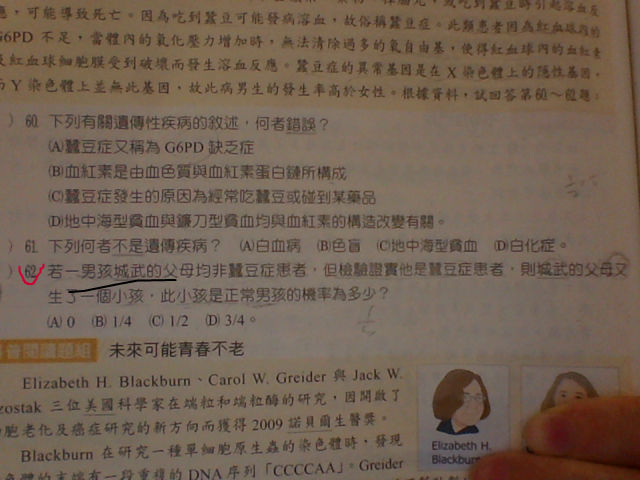 應，可能導致死亡。因為吃到蠶豆可能發病溶血，故俗稱蠶豆症。此類患者因紅血球內的
G6PD 不足，當體內的氧化壓力增加時，無法清除過多的氧自由基，使得紅血球內的血紅素
及紅血球細胞膜受到破壞而發生溶血反應。蠶豆症的異常基因是在 X 染色體上的隱性基因，
而 Y 染色體上並無此基因，故此病男生的發生率高於女性。根據資料，試回答第60～62題：
) 60. 下列有關遺傳性疾病的敘述，何者錯誤？
(A)蠶豆症又稱為 G6PD 缺乏症
(B)血紅素是由血色質與血紅素蛋白鏈所構成
(C)蠶豆症發生的原因為經常吃蠶豆或碰到某藥品
(D)地中海型貧血與鐮刀型貧血均與血紅素的構造改變有關。
) 61. 下列何者不是遺傳疾病？ (A)白血病 (B)色盲 (C)地中海型貧血 (D)白化症。
) 62. 若一男孩城武的父母均非蠶豆症患者，但檢驗證實他是蠶豆症患者，則城武的父母又
生了一個小孩，此小孩是正常男孩的機率為多少？
(A) 0 (B) 1/4 (C) 1/2 (D) 3/4。
普閱讀題組 未來可能青春不老
Elizabeth H. Blackburn、Carol W. Greider 與 Jack W.
zostak 三位美國科學家在端粒和端粒酶的研究，因開啟了
胞老化及癌症研究的新方向而獲得 2009 諾貝爾生醫獎。
Blackburn 在研究一種單細胞原生蟲的染色體時，發現
色體的末端有一段重複的 DNA 序列「CCCCAA」。Greider
Elizabeth H.
Blackbur